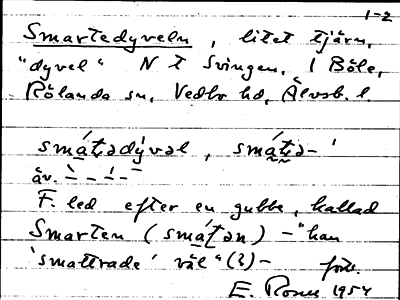 1-2
Smartedyveln, litet tjärn,
"dyvel" N t Svingen, 1 Böle,
Rölanda sn, Vedbo hd, Älvsb. l.
smát̨ədy̓vəl, smát̨ə- '
äv.
F. led efter en gubbe, kallad
Smarten (smát̨ən) - "han
'smattrade' väl" (?) -
E. Rosen 1954